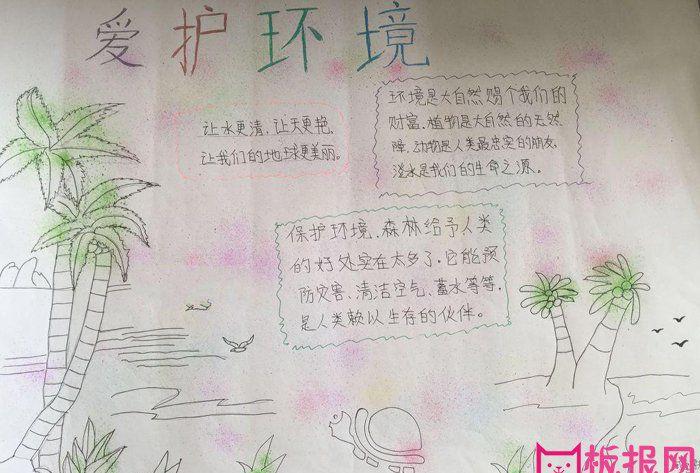 爱护环境
让水更清，让天更艳，
让我们的地球更美丽。
环境是大自然赐个我们的
财富，植物是大自然的天然
障，动物是人类最忠实的朋友，
淡水是我们的生命之源。
保护环境、森林给予人类
的好处实在太多了，它能预
防灾害、清洁空气、蓄水等等，
是人类赖以生存的伙伴。
板报网